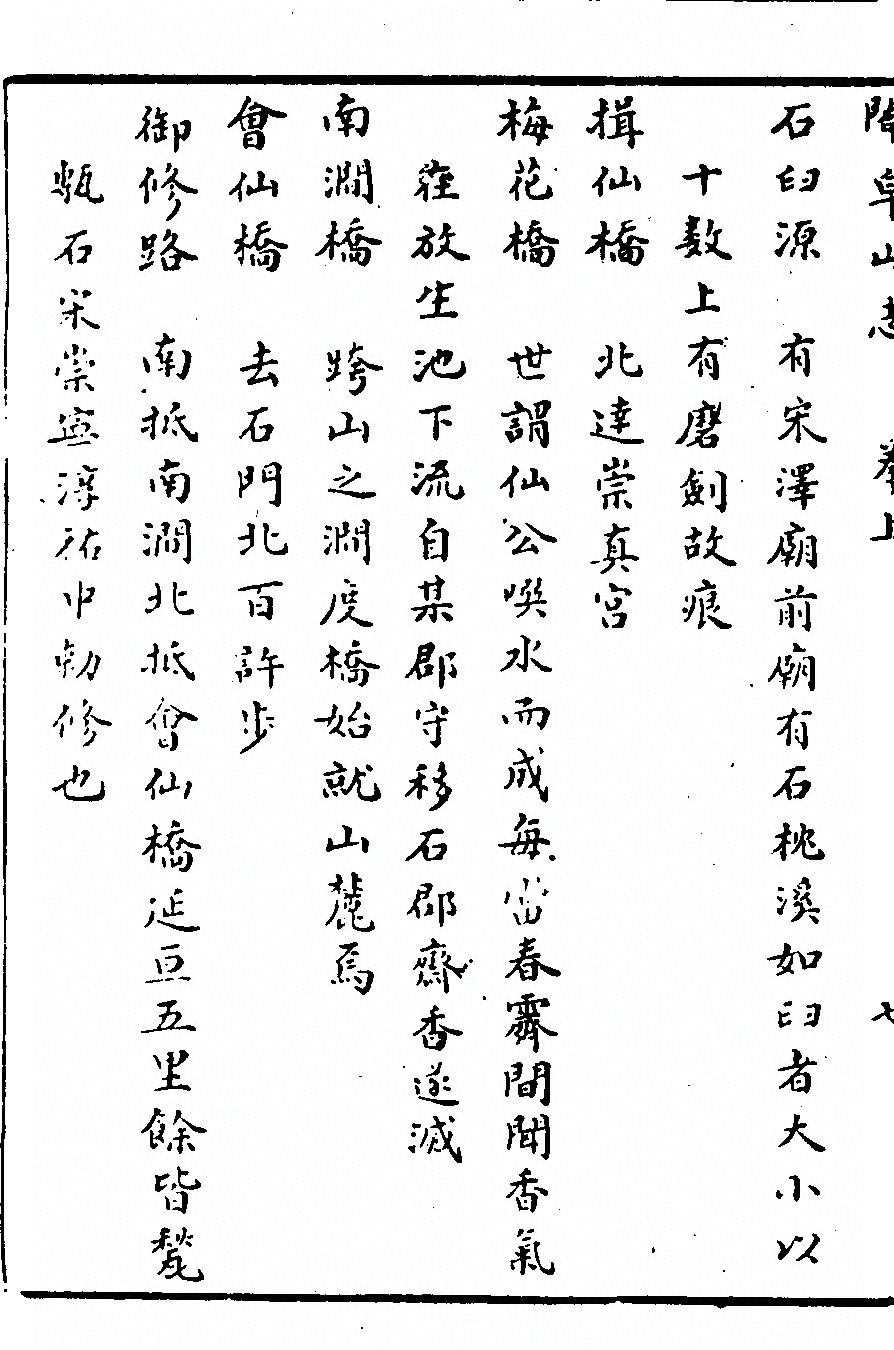 閤皁山志 卷上 七
石臼源 有宋澤廟前廟有石桃溪如臼者大小以
十數上有磨劍故痕
揖仙橋 北達崇真宮
梅花橋 世謂仙公噀水而成每當春霽間聞香氣
在放生池下流自某郡守移石郡齋香遂滅
南澗橋 跨山之澗度橋始就山麓焉
會仙橋 去石門北百許步
御修路 南抵南澗北抵會仙橋延亘五里餘皆甃
甎石宋崇寧淳祐中勅修也